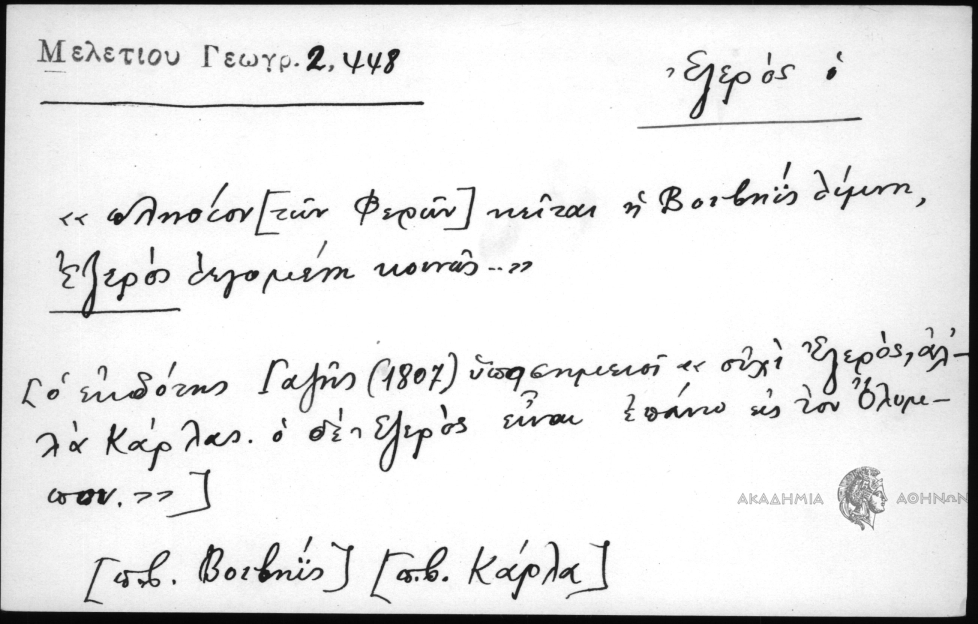 Μελετιου Γεωγρ. 2, 448
Ἐζερός ὁ
«πλησίον [τῶν Φερῶν] κεῖται ἡ Βοιβηΐς λίμνη,
Ἐζερός λεγομένη κοινῶς..»
[ὁ ἐκδότης Γαζῆς (1807) ὑποσημειοῖ «οὐχὶ Ἐζερός, ἀλ-
λὰ Κάρλας. ὁ δὲ Ἐζερός εἶναι ἐπάνω εἰς τὸν Ὄλυμ-
πον.»]
[π.β. Βοιβηΐς] [π.β. Κάρλα]
ΑΚΑΔΗΜΙΑ ΑΘΗΝΩΝ